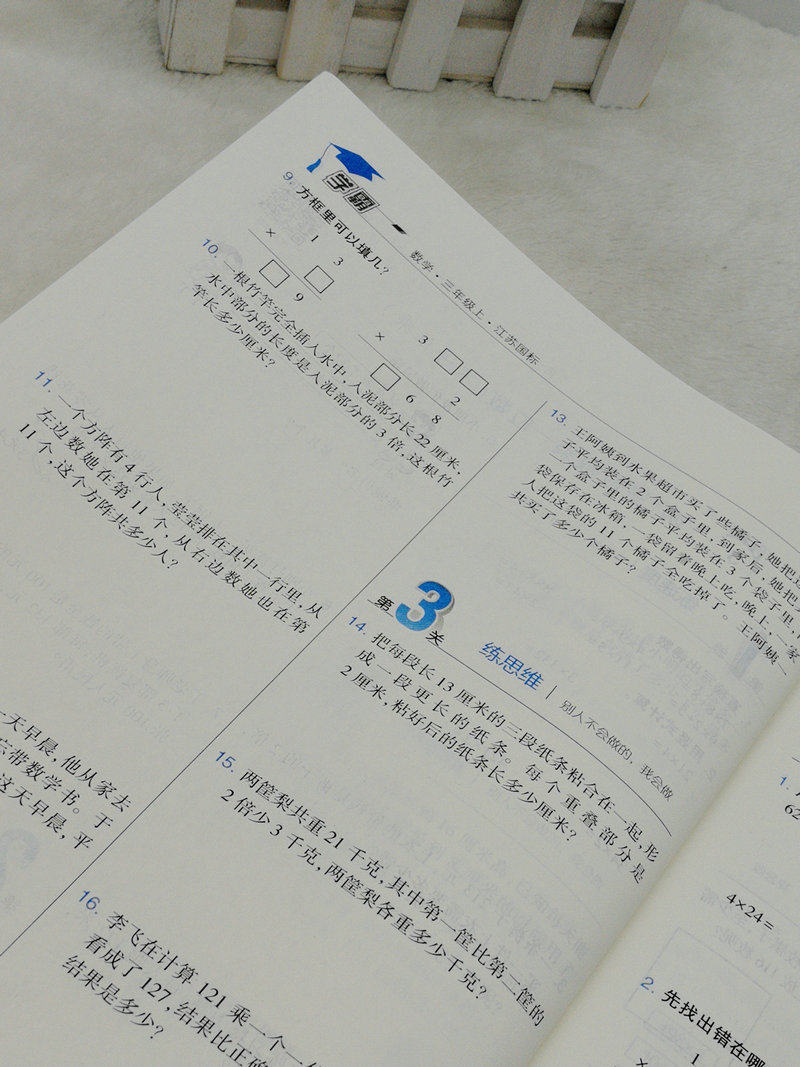 学霸
数学·三年级上·江苏国标
9. 方框里可以填几?
1 3
× □
□ 9
3 □ □
× 2
□ 6 8
10. 一根竹竿完全插入水中,入泥部分长22厘米,
水中部分的长度是入泥部分的3倍,这根竹
竿长多少厘米?
11. 一个方阵有4行人,莹莹排在其中一行里,从
左边数她在第11个,从右边数她也在第
11个,这个方阵共多少人?
天早晨,他从家去
忘带数学书。于
这天早晨,平
13. 王阿姨到水果超市买了些橘子,她把这
子平均装在2个盒子里,到家后,她把
一个盒子里的橘子平均装在3个袋子里,
袋保存在冰箱,一袋留着晚上吃,晚上,一家
人把这袋的11个橘子全吃掉了。王阿姨一
共买了多少个橘子?
第3关 练思维 | 别人不会做的,我会做
14. 把每段长13厘米的三段纸条粘合在一起,形
成一段更长的纸条。每个重叠部分是
2厘米,粘好后的纸条长多少厘米?
15. 两筐梨共重21千克,其中第一筐比第二筐的
2倍少3千克,两筐梨各重多少千克?
16. 李飞在计算121乘一个一
看成了127,结果比正确
结果是多少?
1.
62
4×24=
2. 先找出错在哪
1
×